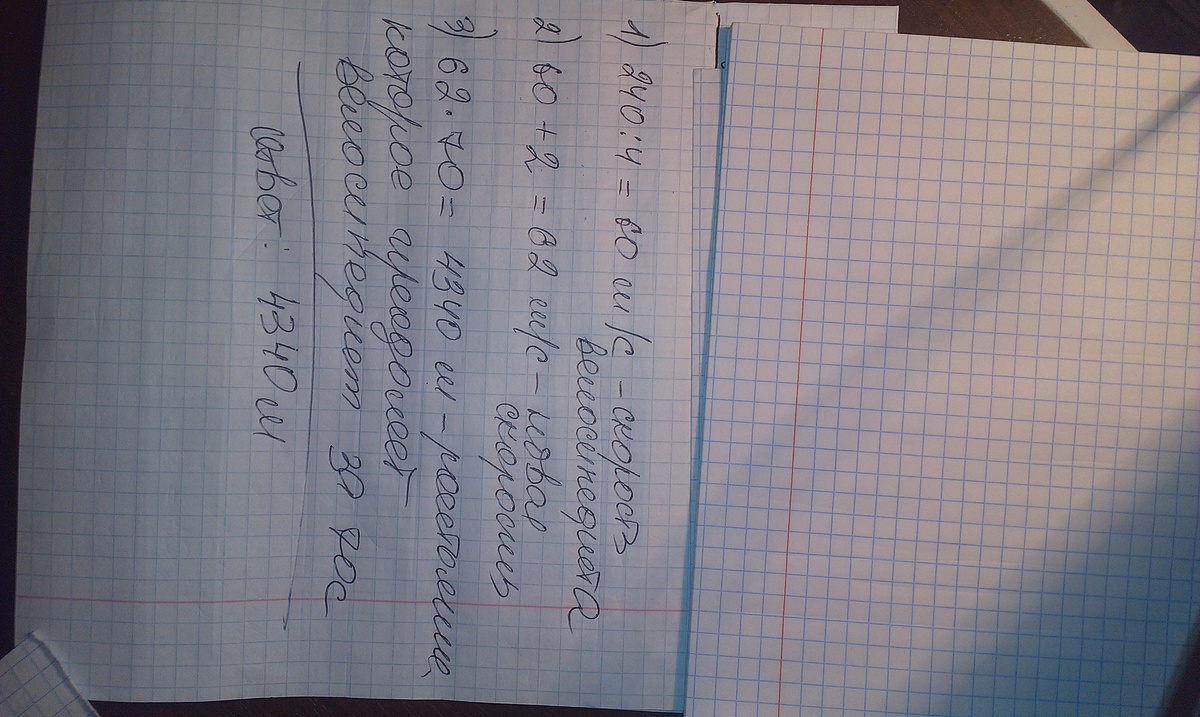 1) 240:4 = 60 м/с - скорость
велосипедиста
2) 60 + 2 = 62 м/с - новая
скорость
3) 62·70 = 4340 м - расстояние,
которое преодолеет
велосипедист за 70с
Ответ: 4340 м